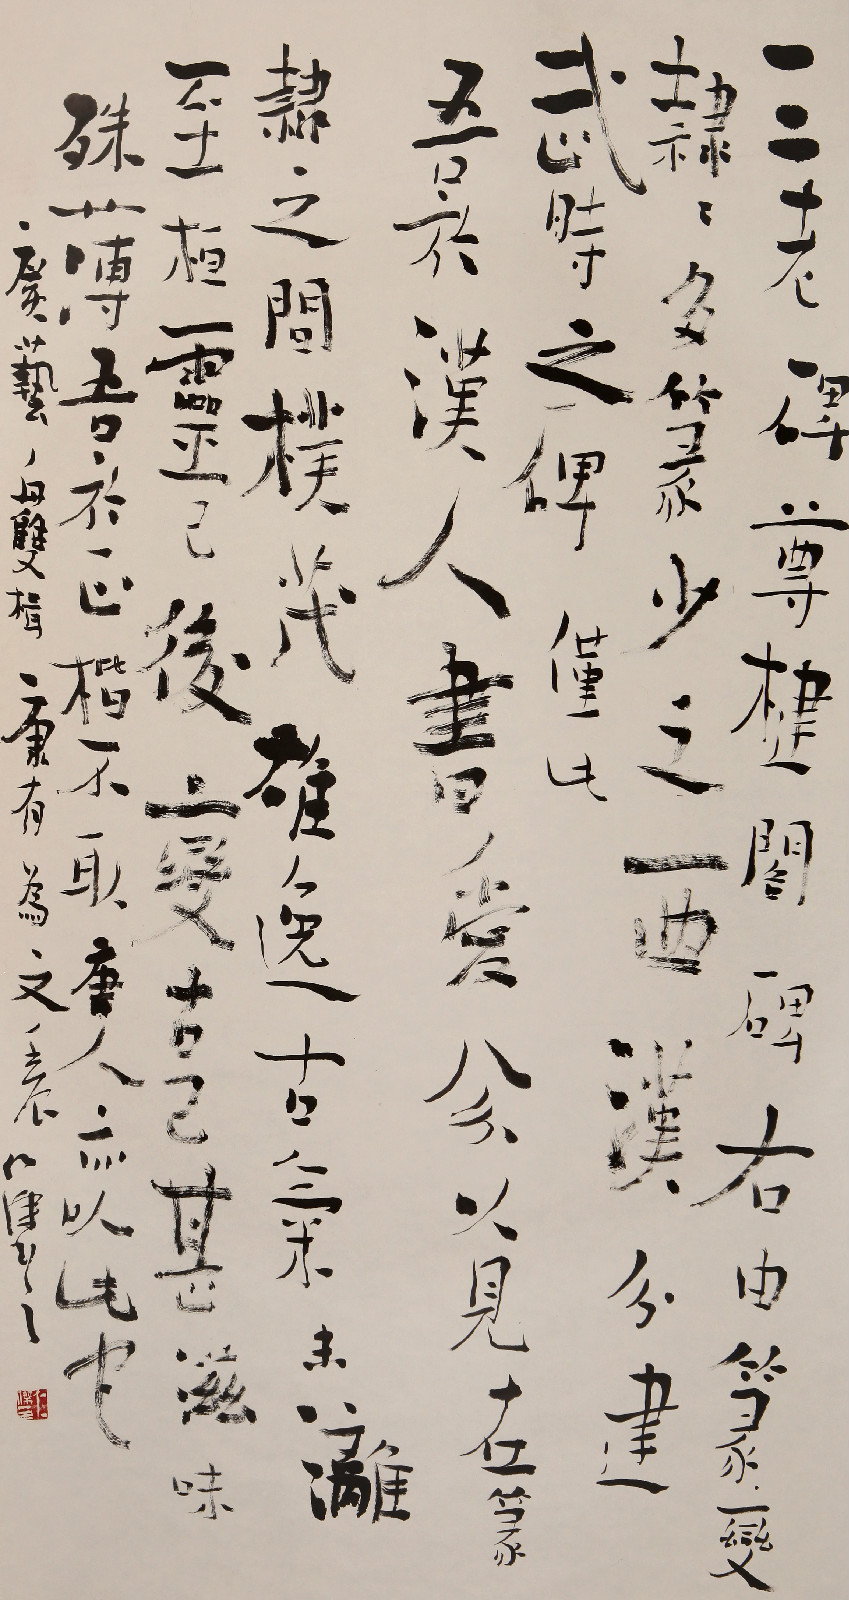 三老碑尊楗閣碑右由篆變
隸隸多篆少之西漢分建
武時之碑僅此
吾於漢人書愛八分以見在篆
隸之間樸茂雄逸古氣未漓
至桓靈已後變古已甚滋味
殊薄吾於正楷不取唐人亦以此也
廣藝舟雙楫 康有為文